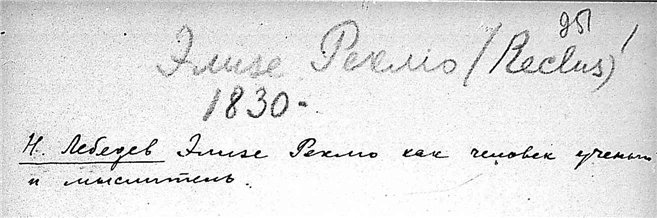 Элизе Реклю (Reclus)
1830-
Н. Лебедев Элизе Реклю как человек ученый
и мыслитель.